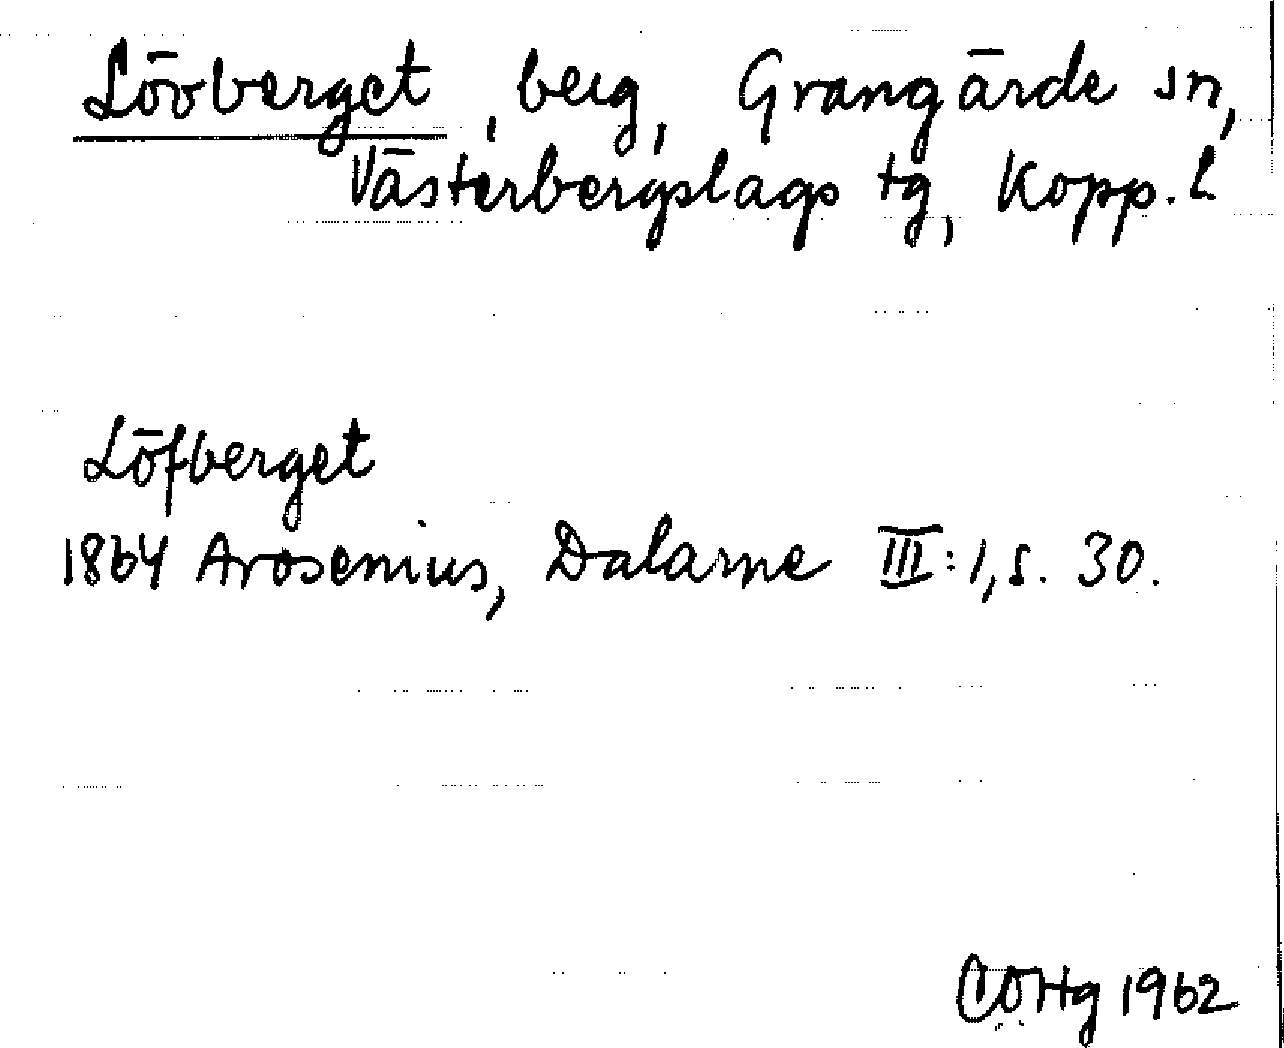 Lövberget, berg, Grangärde sn,
Västerbergslags tg, Kopp. l
Löfberget
1864 Arosenius, Dalarne III:1, s. 30.
COHg 1962